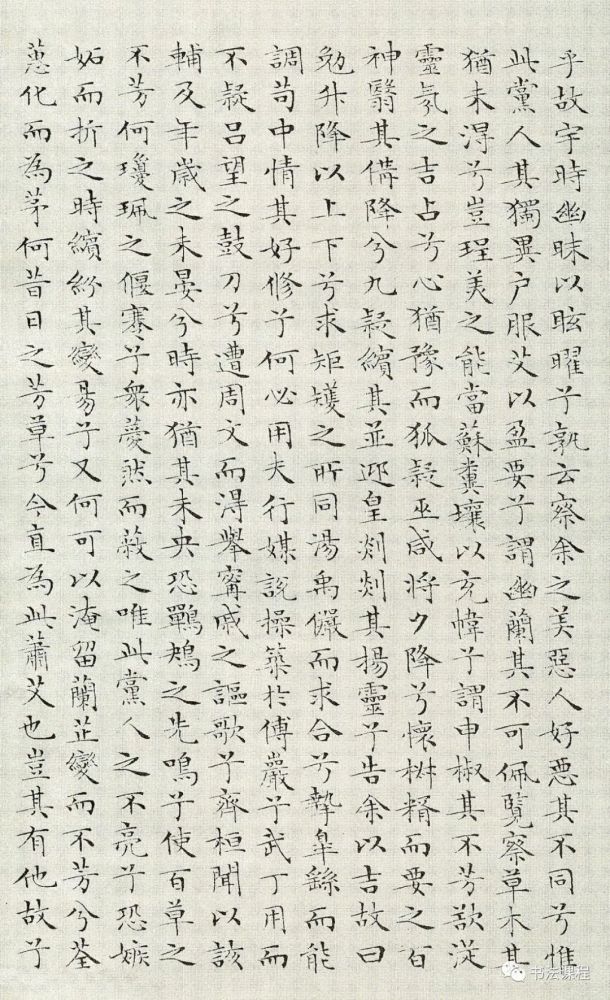 乎故宇時幽昧以眩曜兮孰云察余之美惡人好惡其不同兮惟
此黨人其獨異户服艾以盈要兮謂幽蘭其不可佩覽察草木其
猶未淂兮豈珵美之能當蘇糞壤以充幃兮謂申椒其不芳欲從
靈氛之吉占兮心猶豫而狐疑巫咸将夕降兮懷椒糈而要之百
神翳其備降兮九疑繽其並迎皇剡剡其揚靈兮告余以吉故曰
勉升降以上下兮求矩矱之所同湯禹儼而求合兮摯皐繇而能
調苟中情其好修兮何必用夫行媒說操築於傅巖兮武丁用而
不疑吕望之鼓刀兮遭周文而淂舉甯戚之謳歌兮齊桓聞以該
輔及年歲之未晏兮時亦猶其未央恐鷤鴂之先鳴兮使百草之
不芳何瓊珮之偃蹇兮衆薆然而蔽之唯此黨人之不亮兮恐嫉
妬而折之時繽紛其變易兮又何可以淹留蘭芷變而不芳兮荃
蕙化而為茅何昔日之芳草兮今直為此蕭艾也豈其有他故兮
书法课程